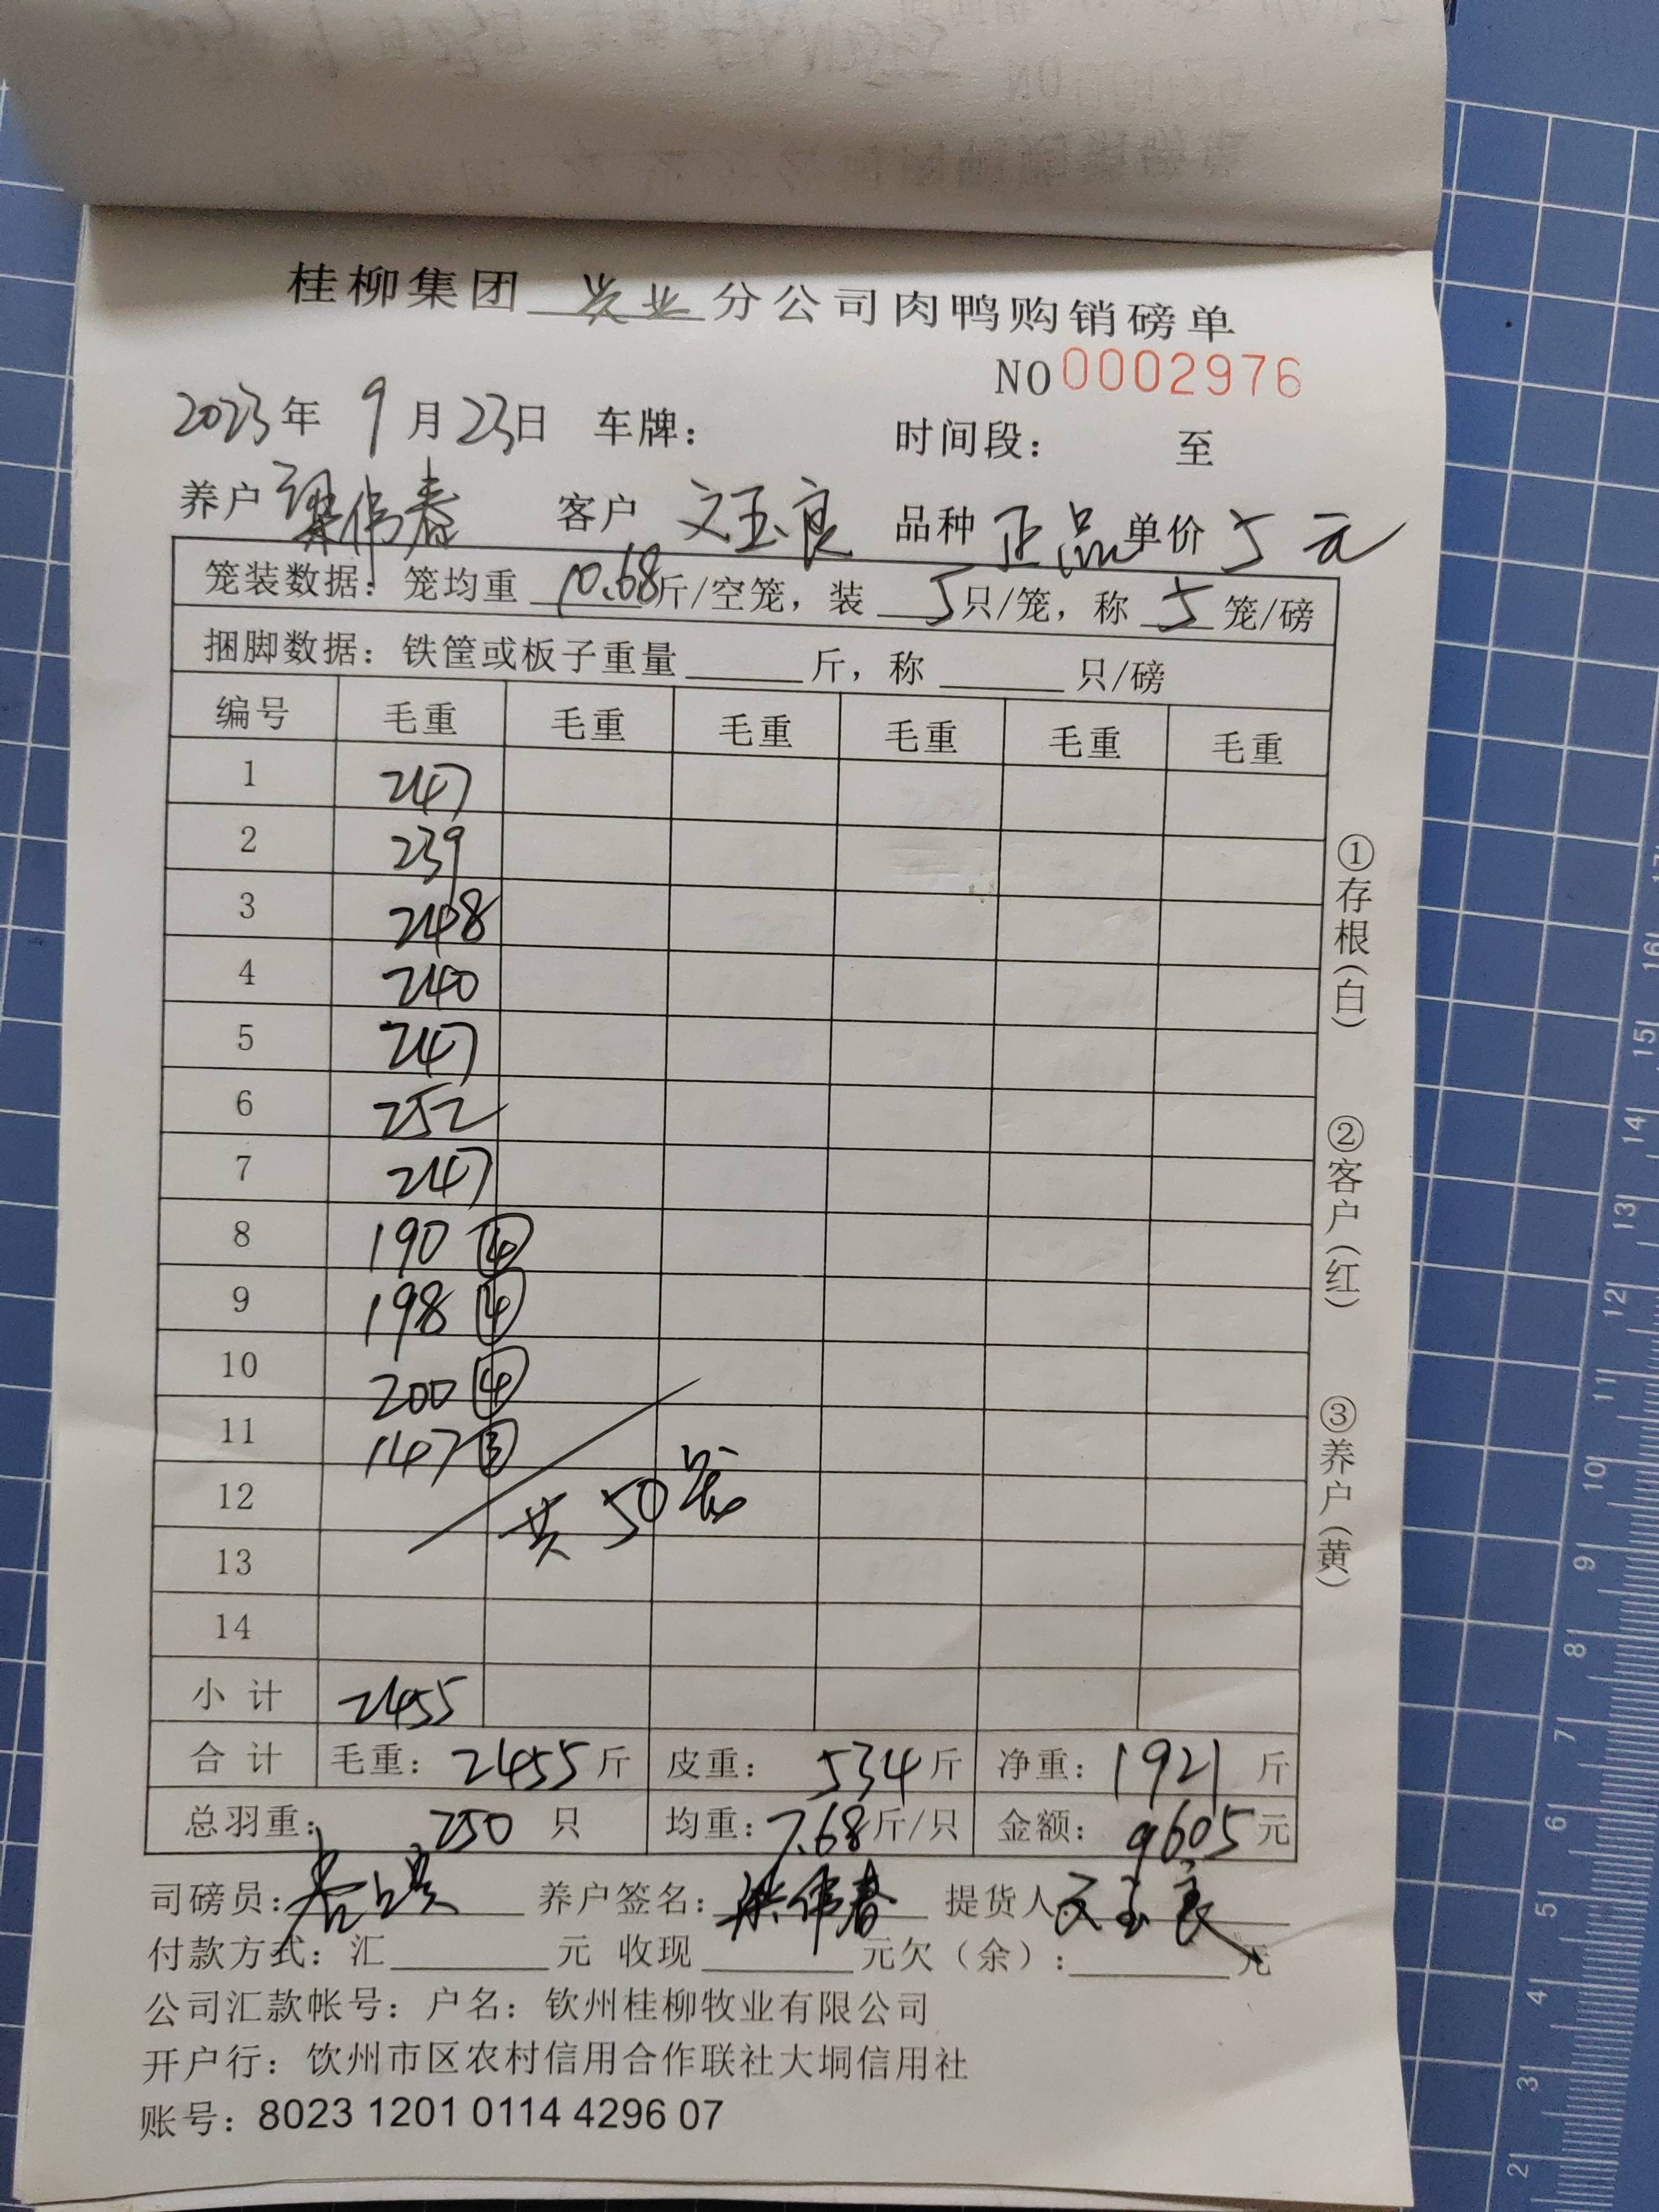 桂柳集团 兴业 分公司肉鸭购销磅单
NO 0002976
2023年 9月23日 车牌： 时间段： 至
养户 梁伟春 客户 文玉良 品种 正品 单价 5元
笼装数据：笼均重 10.68斤/空笼，装 5只/笼，称 5 笼/磅
捆脚数据：铁筐或板子重量______斤，称______只/磅
编号 毛重 毛重 毛重 毛重 毛重 毛重
1 247
2 239
3 248
4 240
5 247
6 252
7 247
8 190 ④
9 198 ④
10 200 ④
11 147 ③
12 共50笼
13
14
小计 2455
合计 毛重：2455斤 皮重：534斤 净重：1921斤
总羽重：250只 均重：7.68斤/只 金额：9605元
司磅员： 养户签名：梁伟春 提货人 文玉良
付款方式：汇______元 收现______元欠（余）：______元
公司汇款帐号：户名：钦州桂柳牧业有限公司
开户行：钦州市区农村信用合作联社大垌信用社
账号：8023 1201 0114 4296 07
①存根（白）
②客户（红）
③养户（黄）
17
16
15
14
13
12
11
10
9
8
7
6
5
4
3
2